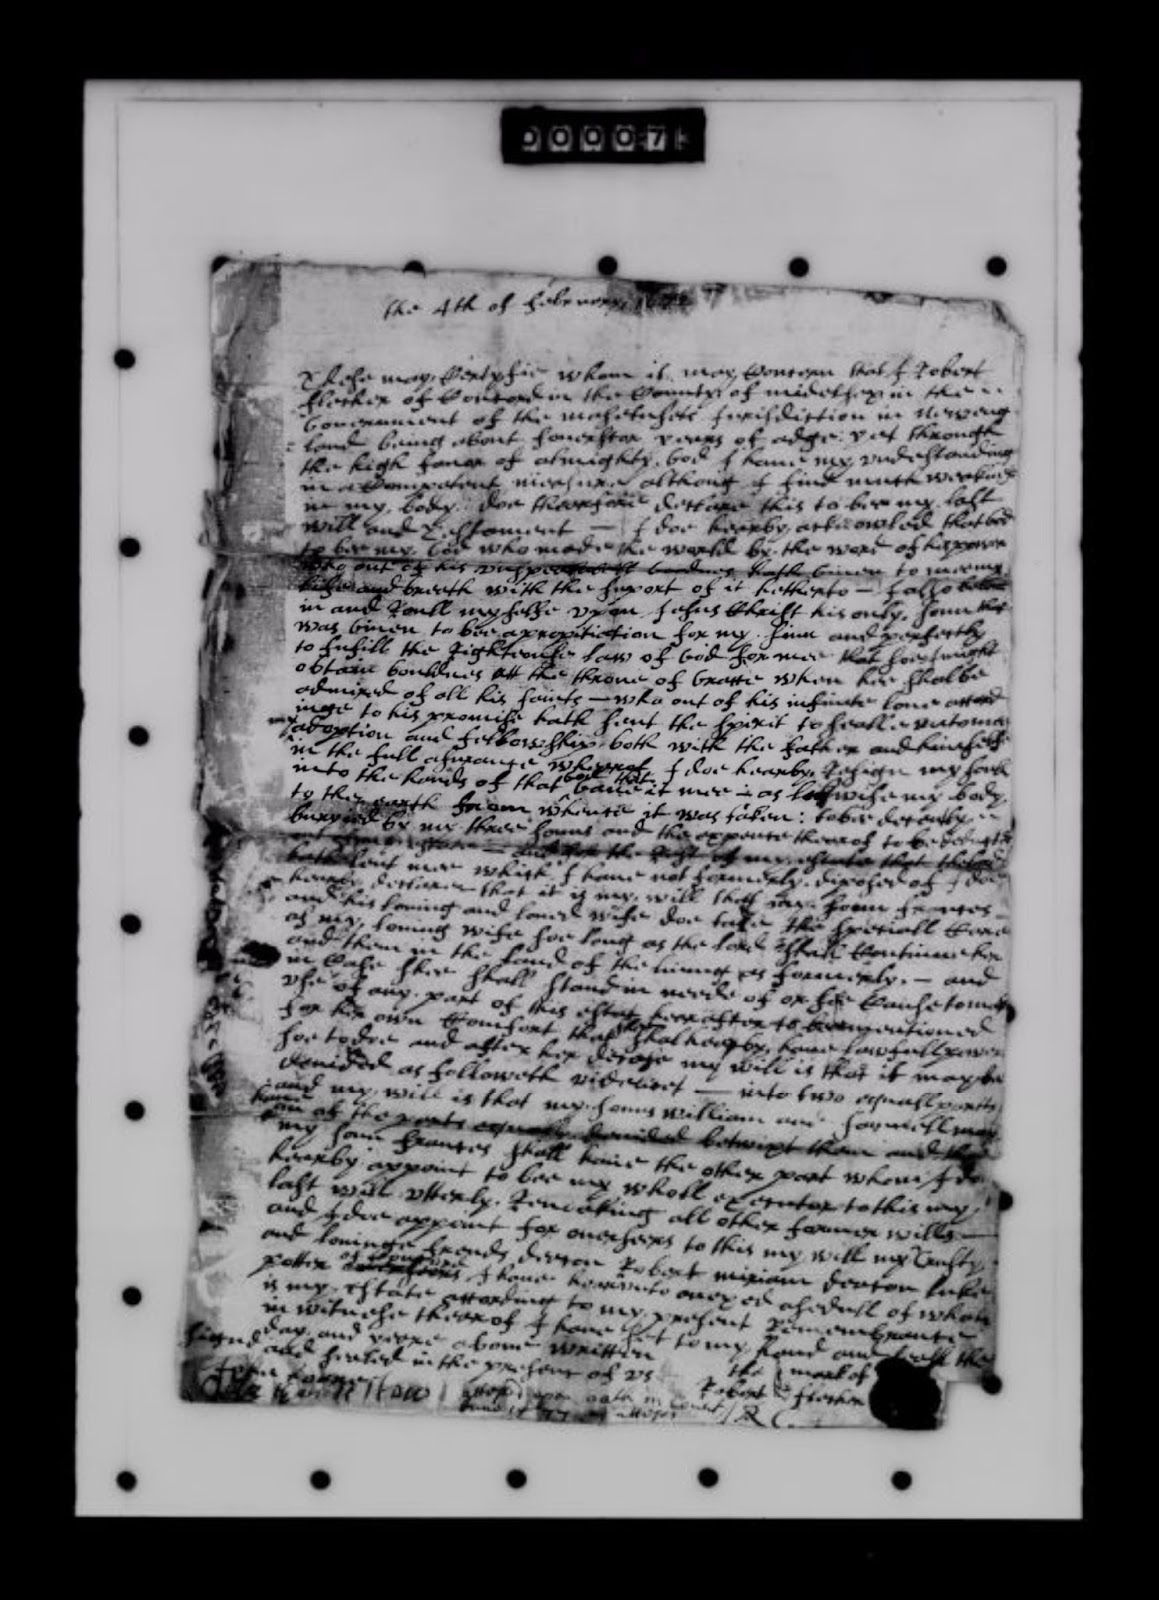 00007
the 4th of february 1672
These may Certyfie whom it may Concern that I Robert
fletcher of Concord in the County of midelsex in the
Government of the Jurisdiction in neweng
land being about fouerscor years of adge: yet through
the high favor of almighty God I have my understanding
in a Competent measure althoug I find much weaknes
in my body: doe therefore declare this to bee my last
will and Testament — I doe hearby acknowled that God
to bee my God who made the world by the word of his power
who out of his goodnes hath Given to mee my
life and breath with the suport of it hetherto — I allso
in and Roull my selfe upon Jesus Christ his only sonn that
was Given to bee a propitiation for my sinn and perfectly
to fulfill the Righteouse law of God for mee that soe I might
obtain bouldnes att the throne of Grace when hee shalbe
admired of all his saints — who out of his infinate love accord
inge to his promise hath sent the spirit to seall unto mee
my adoption and fellowship both with the father and himselfe
in the full asurance wherof I doe hearby Resign my soul
into the hands of that God that Gave it mee — as likwise my body
to the earth from whence it was taken: to be decently
burried by my three sonns and the expence thearof to be
— and for the Rest of my estate that the lord
hath lent mee which I have not formerly disposed of I doe
hearby declare that it is my will that my sonn frances
and his loving and loved wife doe take the speciall Care
of my loving wife soe long as the lord shall Continue her
and them in the land of the living as formerly. — and
in Case shee shall stand in neede of or see Cause to make
use of any part of this estat hearafter to bee mentioned
for her own Comfort that shee shall hearby have lawfull power
soe to doe and after her decease my will is that it may be
devided as followeth videlicet — into two equall partts
and my will is that my sonns william and samuell may
have on of the parts equally devided betwixt them and that
my sonn frances shall have the other part whom I doe
hearby appoint to bee my wholl executor to this my
last will utterly Revoaking all other former wills —
and I doe appoint for overseers to this my will my Trusty
and lovinge frends deacon Robert miriam deacon luke
potter of Concord I have hearunto anexed a shedull of what
is my Estate according to my present Remembrance
in witnesse thearof I have set to my hand and seall the
day and yeare above written
signd and sealed in the presenc of us
the mark of
Robert fletcher
upon oath in Court